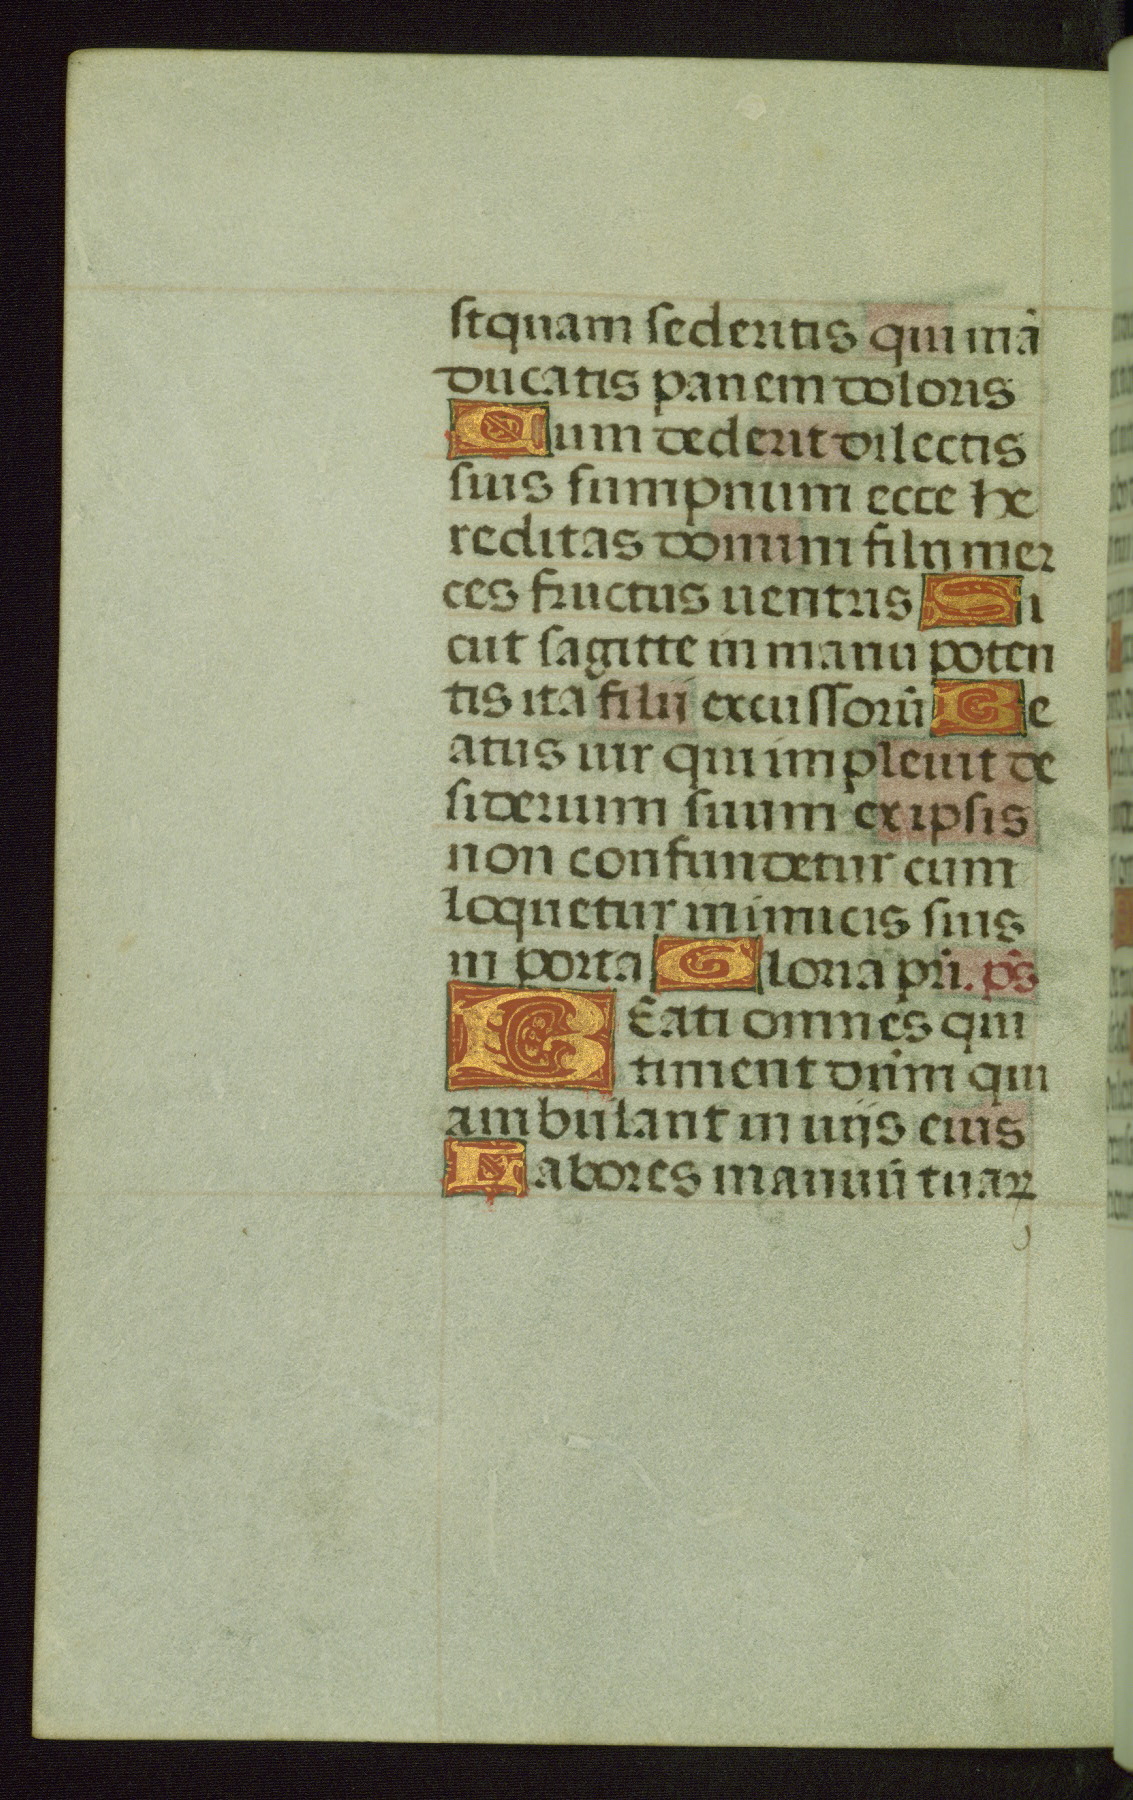 stquam sederitis qui mā
ducatis panem doloris
Cum dederit dilectis
suis sumpnum ecce he
reditas domini filii mer
ces fructus uentris Si
cut sagitte in manu poten
tis ita filii excussorū Be
atus uir qui impleuit de
siderium suum ex ipsis
non confundetur cum
loquetur inimicis suis
in porta Gloria pr̄i. ps̄
BEati omnes qui
timent dn̄m qui
ambulant in uijs eius
Labores manuū tuaꝝ